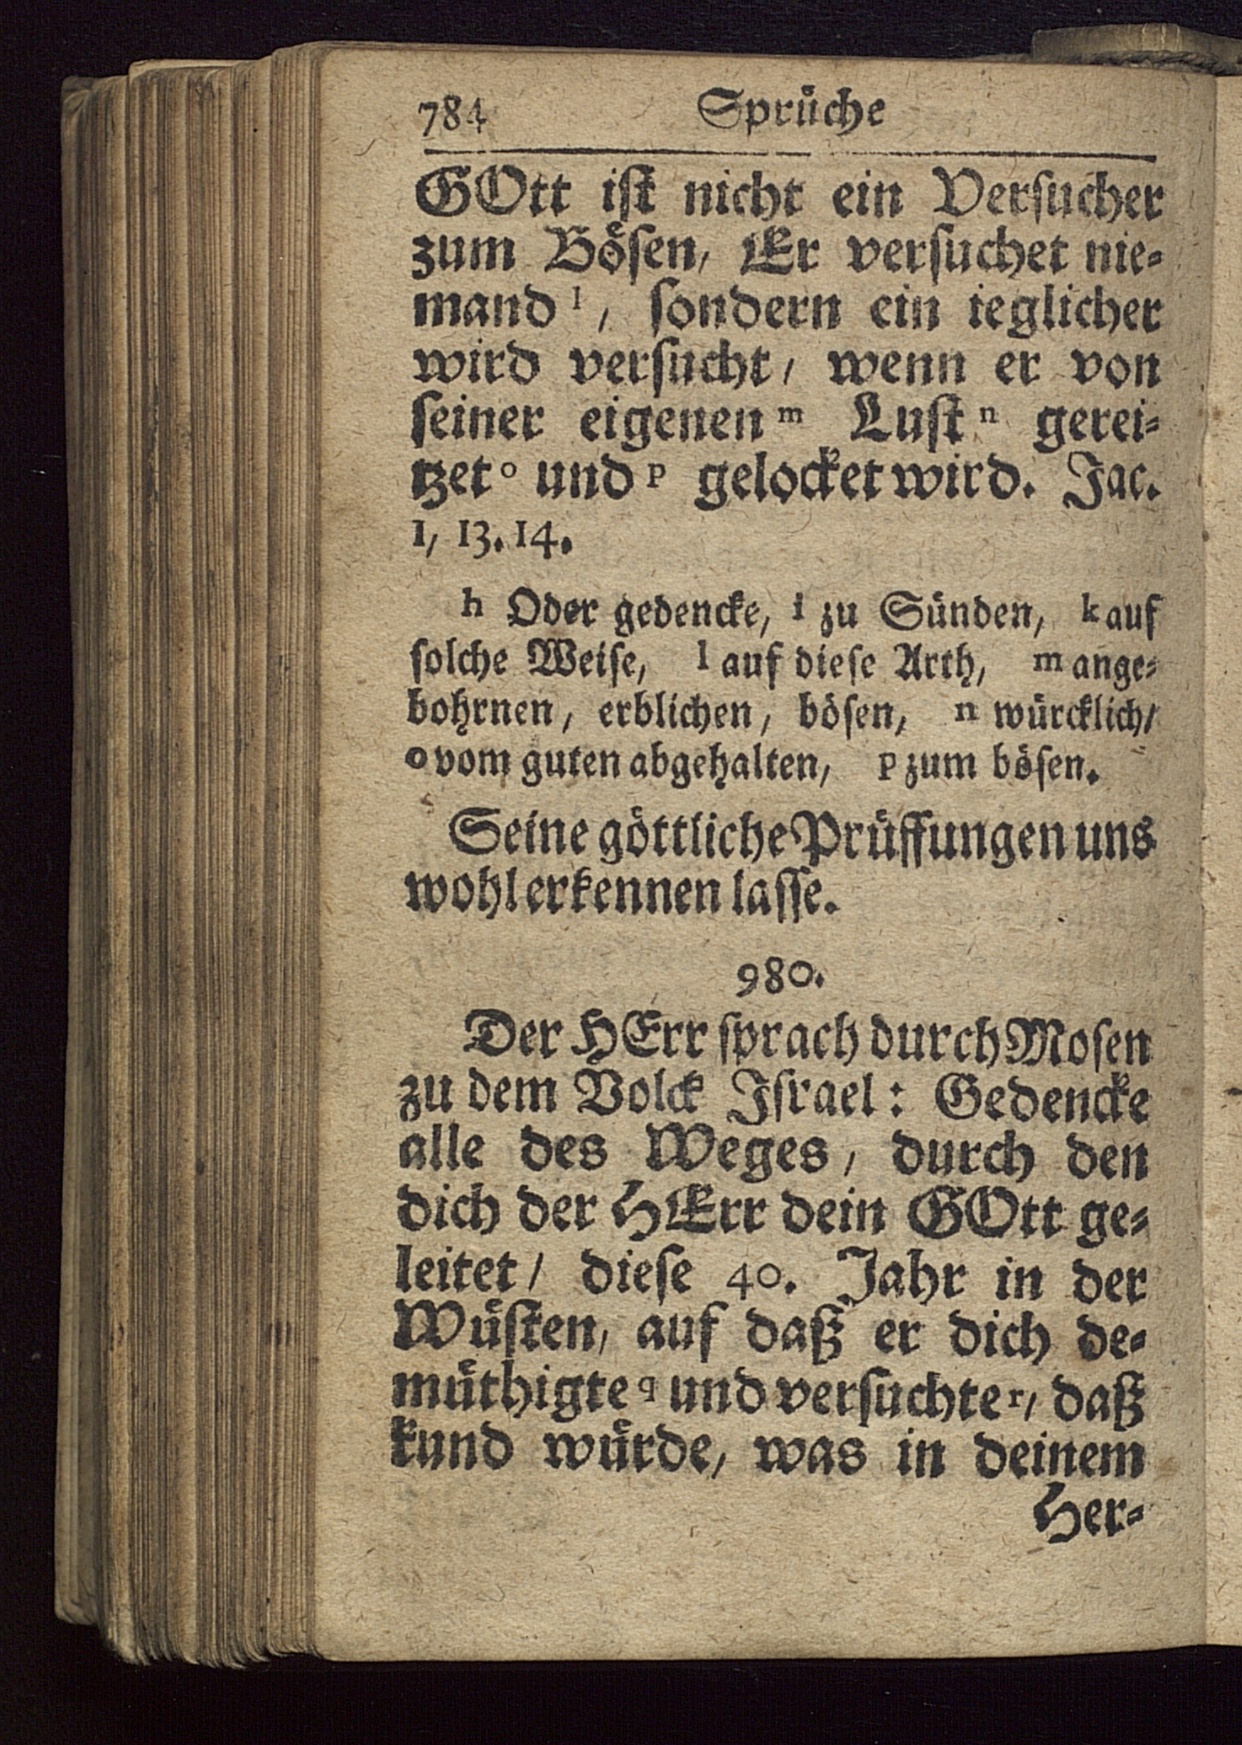 784 Sprüche
GOtt ist nicht ein Versucher
zum Bösen, Er versuchet nie-
mand l, sondern ein ieglicher
wird versucht, wenn er von
seiner eigenen m Lust n gerei-
tzet o und p gelocket wird. Jac.
1, 13. 14.
h Oder gedencke, i zu Sünden, k auf
solche Weise, l auf diese Arth, m ange-
bohrnen, erblichen, bösen, n würcklich/
o vom guten abgehalten, p zum bösen.
Seine göttliche Prüffungen uns
wohl erkennen lasse.
980.
Der HErr sprach durch Mosen
zu dem Volck Israel: Gedencke
alle des Weges, durch den
dich der HErr dein GOtt ge-
leitet/ diese 40. Jahr in der
Wüsten, auf daß er dich de-
müthigte q und versuchte r, daß
kund würde, was in deinem
Her-